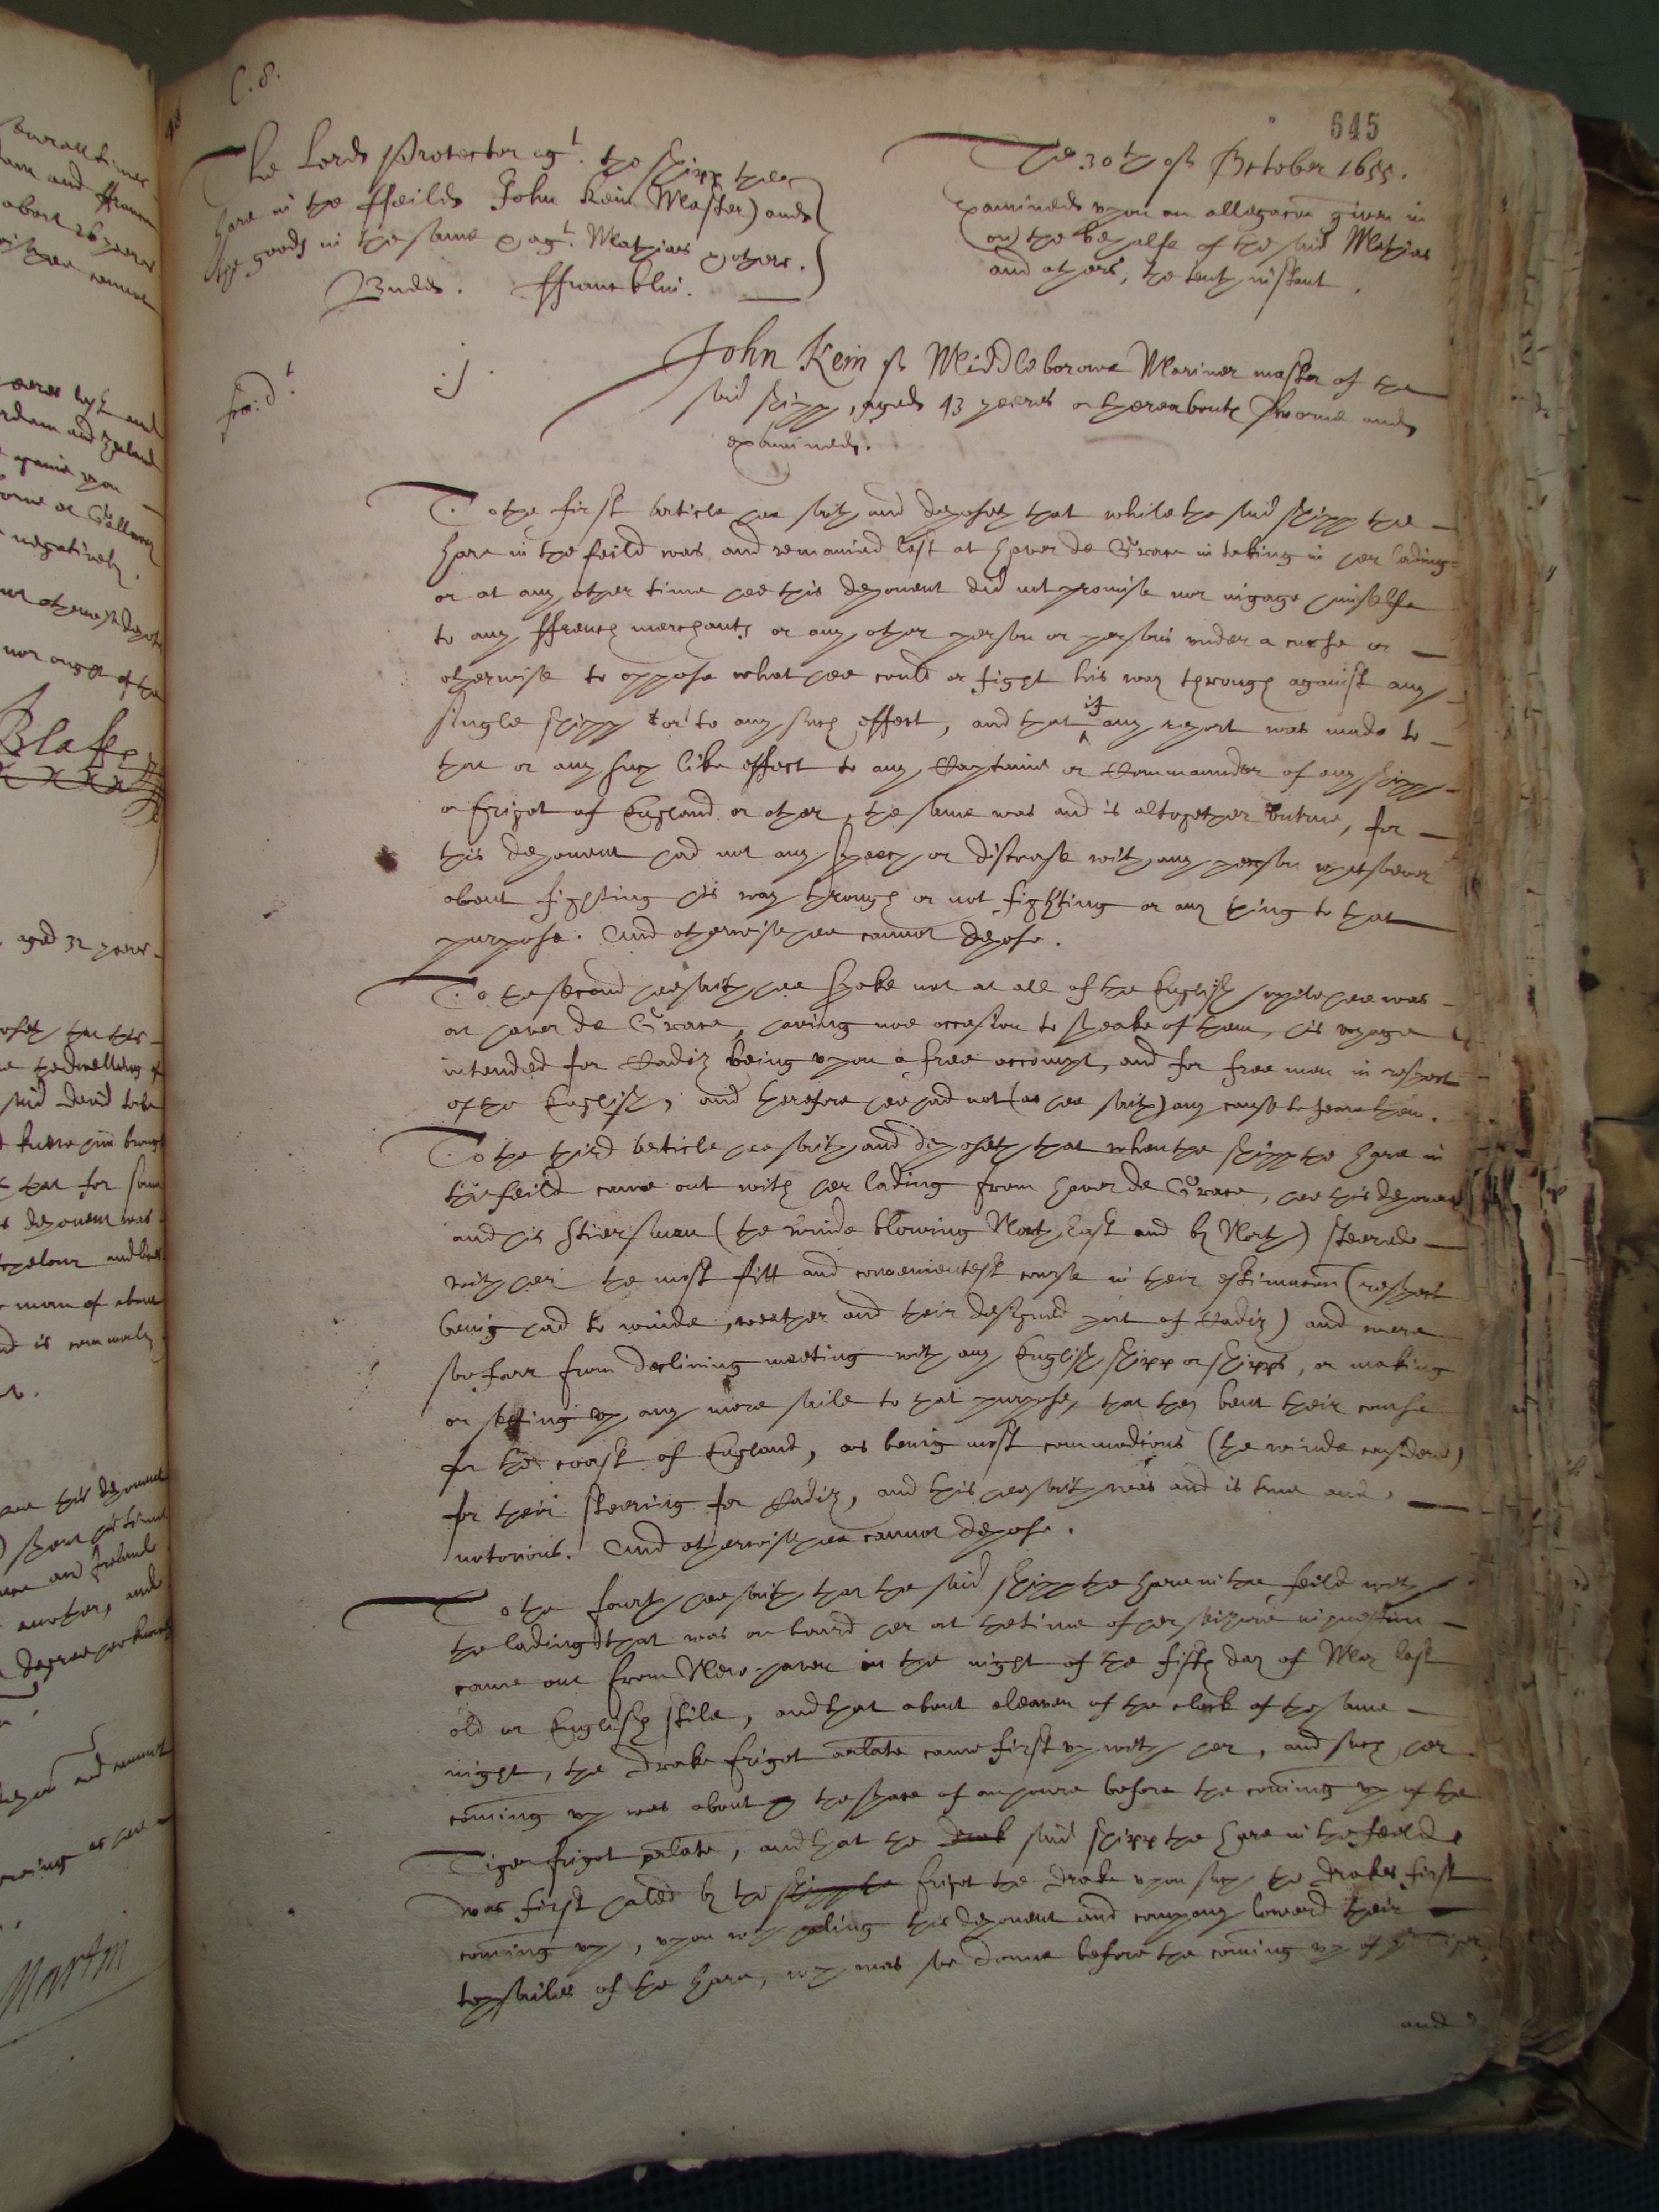 C.8.
645
The Lord Protector agt. the shipp the
hare in the ffeild John Kein Master) and
the goods in the same & agt. Mathias & others.
Budd. ffrancklin.
The 30th of October 1655.
Examined upon an allegacon given in
on the behalfe of the said Mathias
and others, the tenth instant.
.j.
John Kein of Middleborowe Mariner master of the
said shipp, aged 43 yeeres or thereaboute sworne and
examined.
To the first article hee saith and deposeth that while the said shipp the
hare in the feild was and remained last at haver de Grace in taking in her lading
or at any other time hee this deponent did not promise nor ingage himselfe
to any ffrench merchants or any other person or persons under a curse or
otherwise to oppose what hee could or fight his way through against any
single shipp or to any such effect, and that if any report was made to
the or any such like effect to any Captaine or Commaunder of any shipp
or frigot of England or other, the same was and is altogether untrue, for
this deponent had not any speech or discourse with any person whatsoever
about fighting his way through or not fighting or any thing to that
purpose. And otherwise hee cannot depose.
To the second hee saith hee spoke not at all of the English while hee was
at haver de Grace, having noe occasion to speake of them, his voyage
intended for Cadiz being upon a free accompt, and for free men in respect
of the English, and therefore hee had not (as hee saith) any cause to feare them.
To the third article hee saith and deposeth that when the shipp the hare in
the feild came out with her lading from haver de Grace, hee this deponent
and his stiersman (the winde blowing North East and by North) steered
with her the most fitt and convenientest course in their estimacon (respect
being had to winde, weather and their designed port of Cadiz) and were
soe farr from declining meeting with any English shipp or shipps, or making
or setting up any more saile to that purpose, that they bent their course
for the coast of England, as being most commodious (the winde considered)
for their steering for Cadiz, and this hee saith was and is true and
notorious. And otherwise hee cannot depose.
To the fourth hee saith that the said shipp the hare in the feild with
the lading that was on board her at the time of her seizure in question
came out from New haven in the night of the fifth day of May last
old or English stile, and that about eleaven of the clock of the same
night, the Drake frigot arlate came first up with her, and such her
coming up was about the space of an houre before the coming up of the
Tiger frigot arlate, and that the said shipp the hare in the feild
was first haled by the shipp the frigot the Drake upon such the Drakes first
coming up, upon wch haling this deponent and company lowerd their
topsailes of the hare, wch was soe donne before the coming up of the Tiger,
and